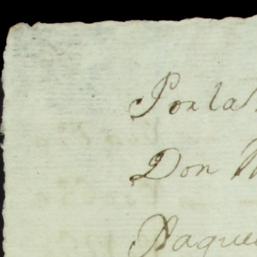 Por la
Don
Paque